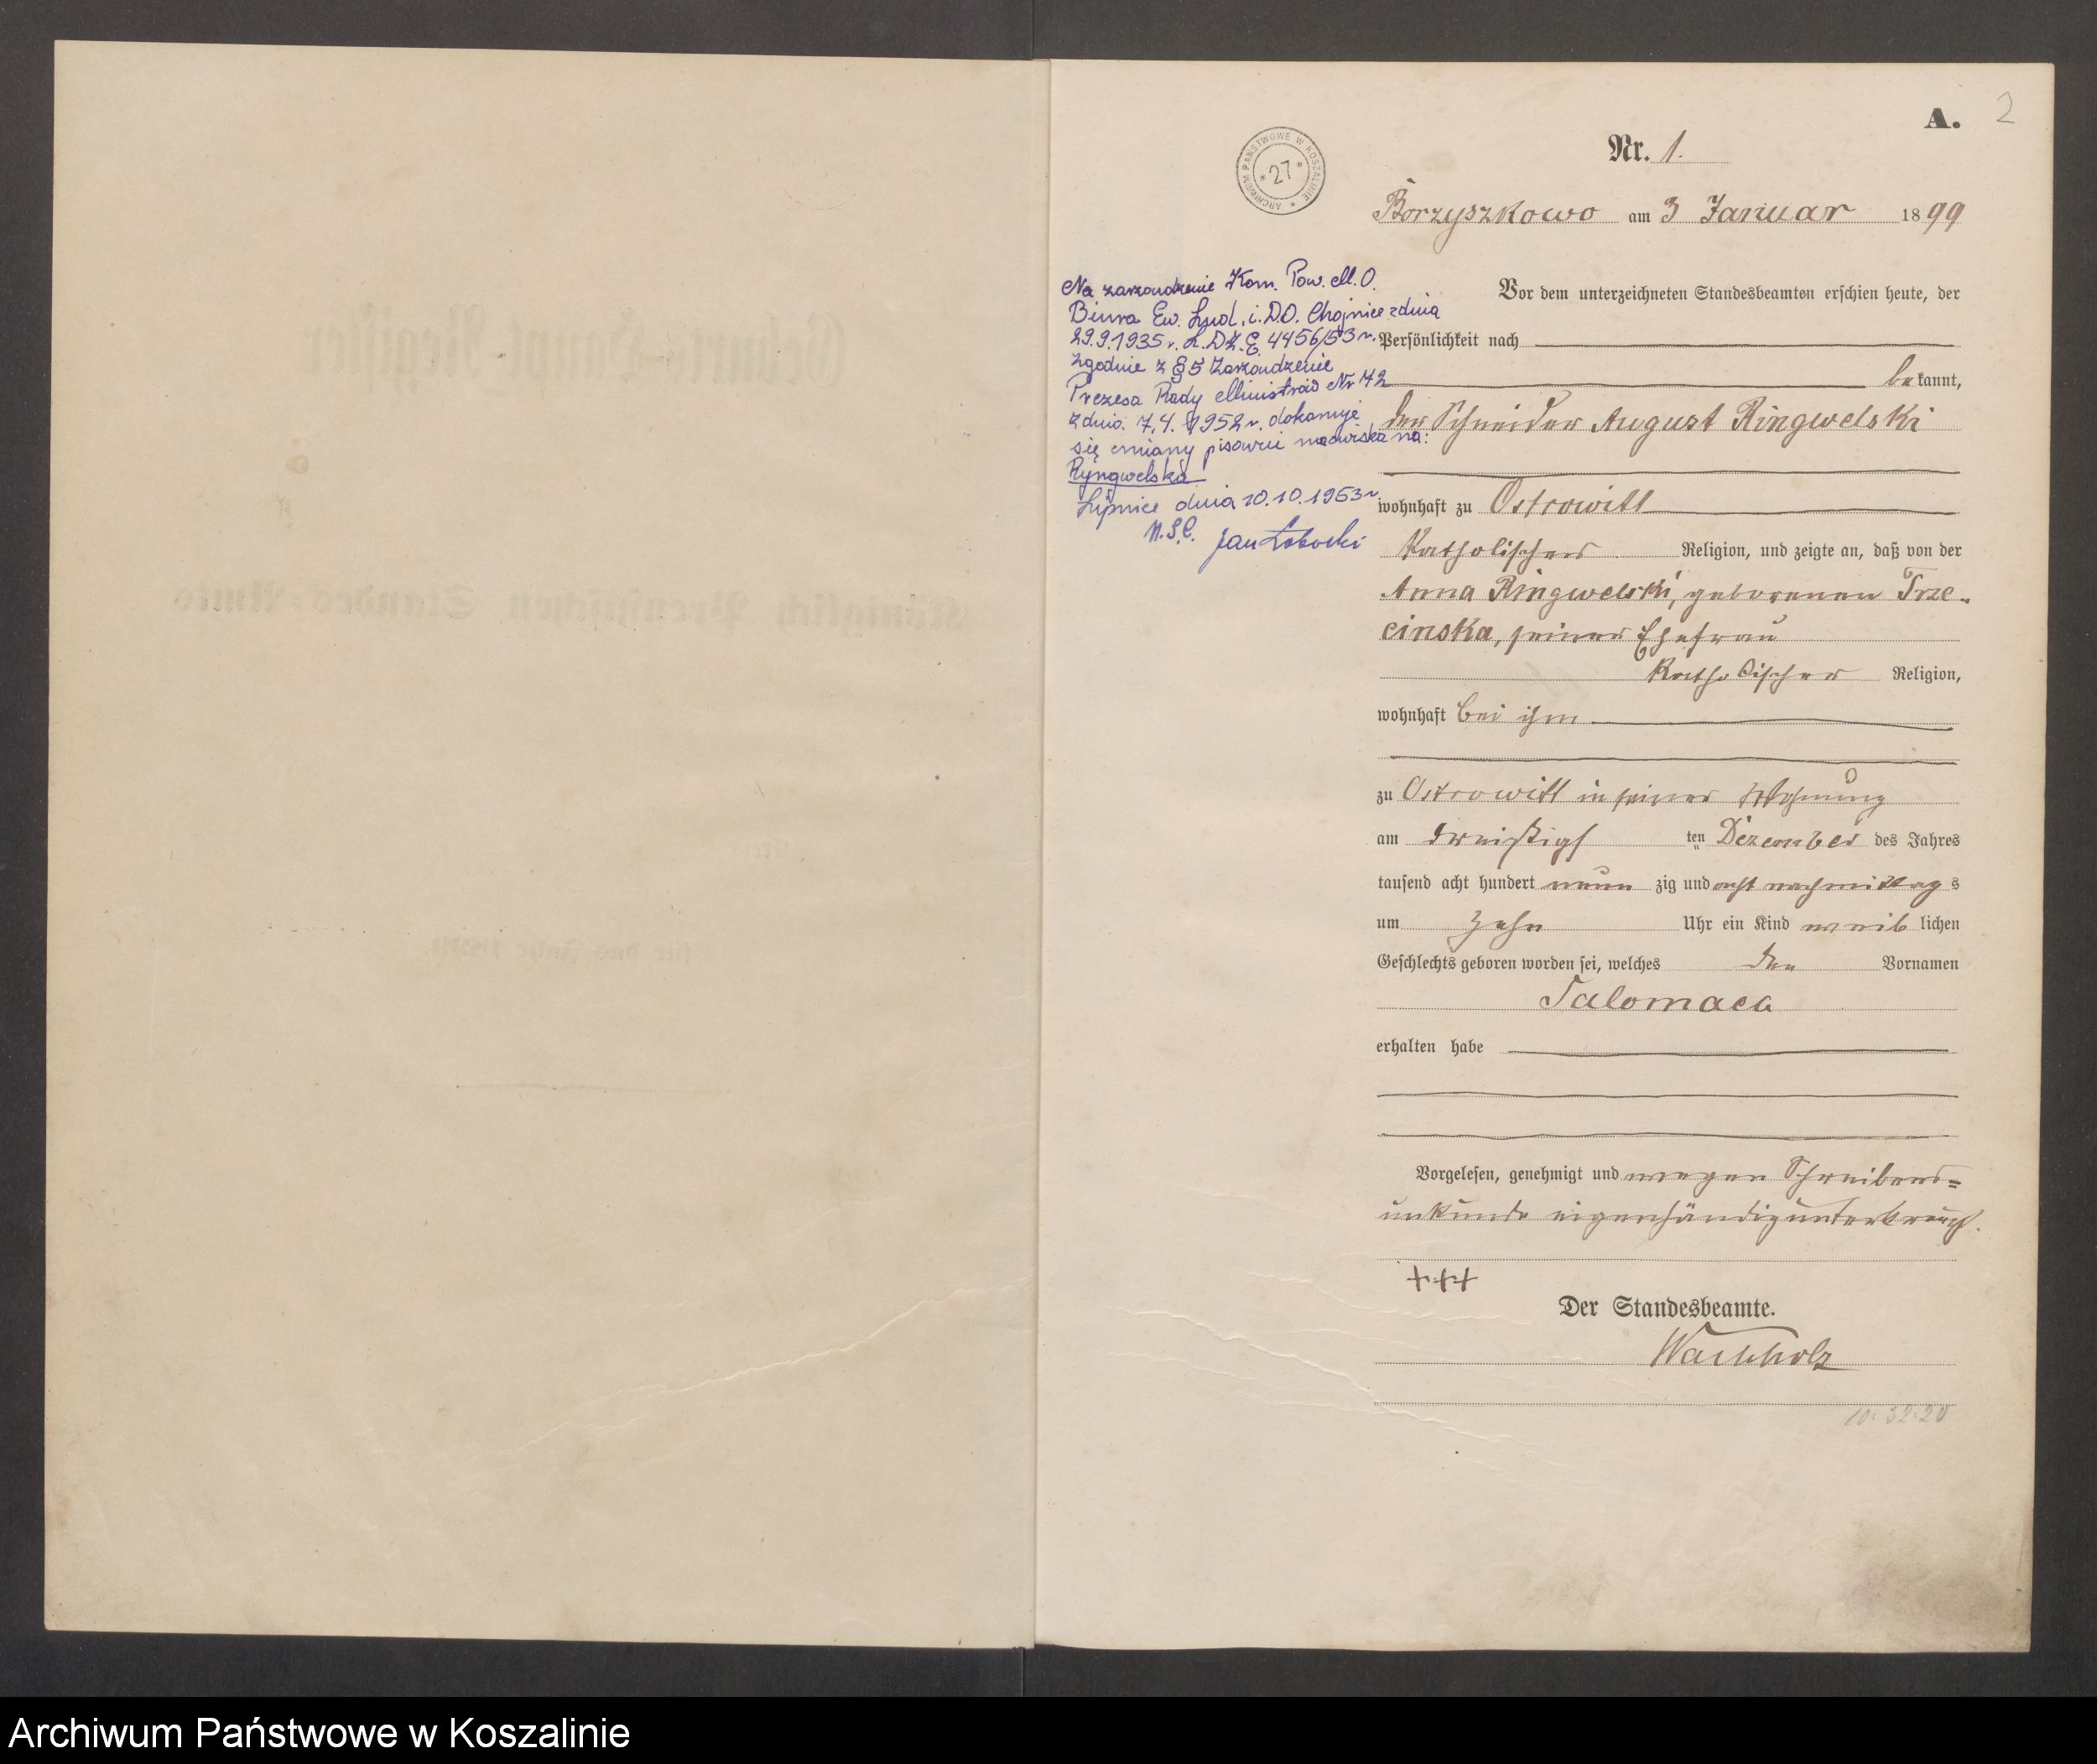 A.
2
Nr. 1.
ARCHIWUM PAŃSTWOWE W KOSZALINIE * 27 *
Borzyszkowo am 3 Januar 1899
Na zarzondzenie Kom. Pow. M.O.
Biura Ew. Lud. i. D.O. Chojnice zdnia
29.9.1935r. L.Dz.E. 4456/53r.
zgodnie z § 5 Zarzondzenie
Prezesa Rady Ministrów Nr 42
zdnia. 7.4. 1952r. dokonuje
się zmiany pisowni nazwiska na:
Ryngwelska
Lipnice dnia 10.10.1953r
U.S.C. Jan
Vor dem unterzeichneten Standesbeamten erschien heute, der
Persönlichkeit nach
bekannt,
der Schneider August Ringwelski
wohnhaft zu Ostrowitt
katholischer Religion, und zeigte an, daß von der
Anna Ringwelski, geborenen Trze-
cinska, seiner Ehefrau
katholischer Religion,
wohnhaft bei ihm
zu Ostrowitt in seiner Wohnung
am dreißigsten Dezember des Jahres
tausend acht hundert neunzig und acht nachmittags
um zehn Uhr ein Kind weiblichen
Geschlechts geboren worden sei, welches den Vornamen
Salomaea
erhalten habe
Vorgelesen, genehmigt und wegen Schreibens-
unkunde eigenhändig unterkreuzt.
+++
Der Standesbeamte.
Wachholz
10.32.20
Archiwum Państwowe w Koszalinie